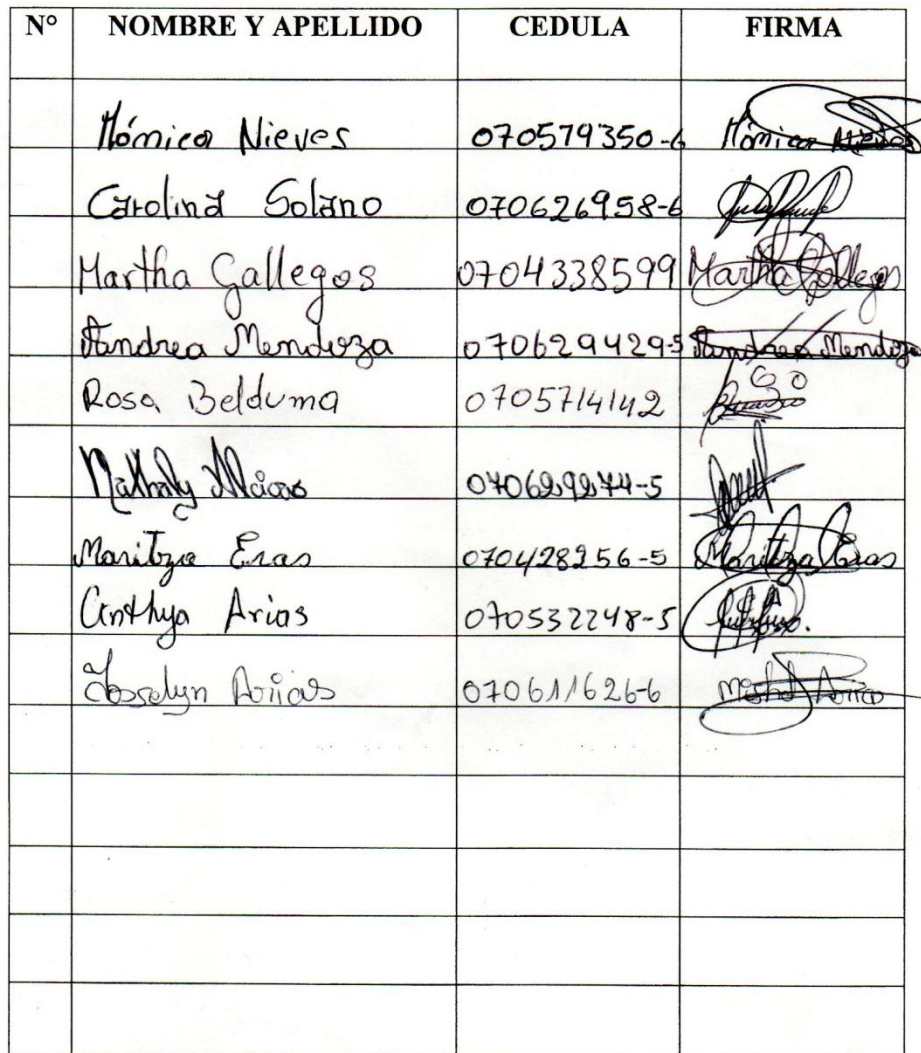 N° NOMBRE Y APELLIDO CEDULA FIRMA
Mónica Nieves 070579350-6 Mónica Nieves
Carolina Solano 070626958-6
Martha Gallegos 0704338599 Martha Gallegos
Andrea Mendoza 070629429-5 Andrea Mendoza
Rosa Belduma 0705714142
Nathaly Macas 070629274-5
Maritza Eras 070428256-5 Maritza Eras
Cinthya Arias 070532248-5
Josselyn Arias 070611626-6 Mishel Arias